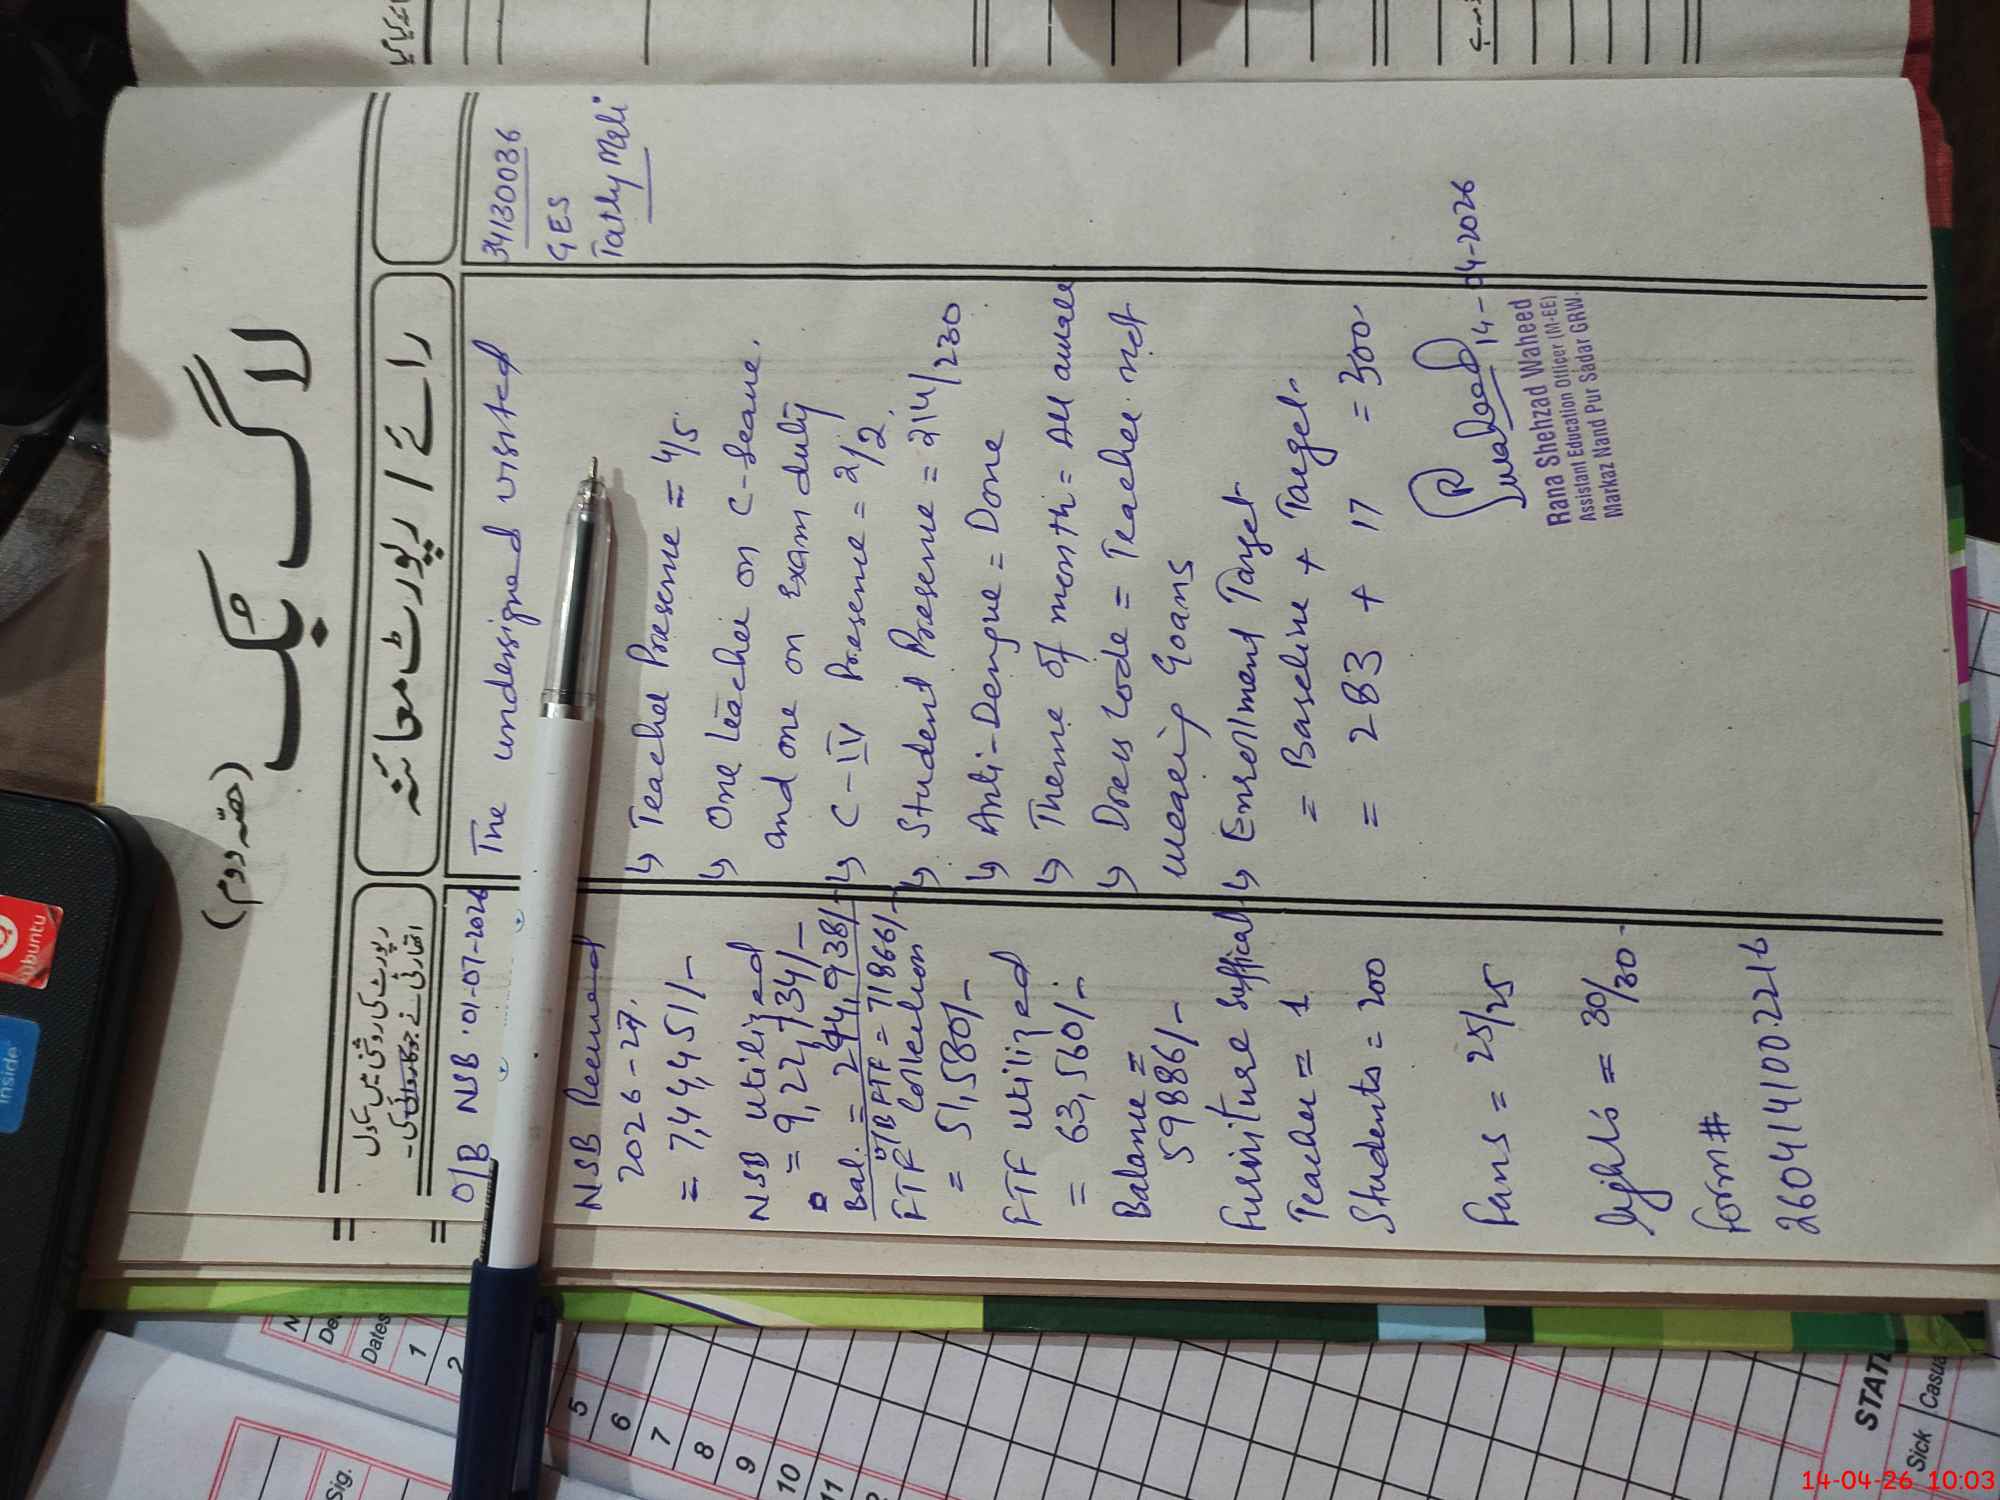 لاگ بک
(حصّہ دوم)
رائے / رپورٹ معائنہ
رپورٹ کی روشنی میں سکول
اتھارٹی نے جو کارروائی کی۔
34130036
GES
The undersigned visited
Teacher Presence = 4/5
One teacher on C-leave.
and one on Exam duty
C-IV Presence = 2/2
Student Presence = 214/230
Anti-Dengue = Done
Theme of month = All aware
Dress Code = Teacher not
wearing Goans
Enrollment Target
= Baseline + Target
= 283 + 17 = 300
14-04-2026
Rana Shehzad Waheed
Assistant Education Officer (M-EE)
Markaz Nand Pur Sadar GRW.
O/B NSB 01-07-2026
NSB Received
2026-27.
= 7,44,451/-
NSB utilized
= 9,22,734/-
Bal. = 294,938/-
O/B FTF = 71866/-
FTF Collection
= 51,580/-
FTF utilized
= 63,560/-
Balance =
59886/-
Furniture Sufficient
Teacher = 1
Students = 200
Fans = 25/25
lights = 30/30
Form#
2604141002216
Dates
1
2
5
6
7
8
9
10
11
Sig.
Sick
ubuntu
inside
14-04-26 10:03